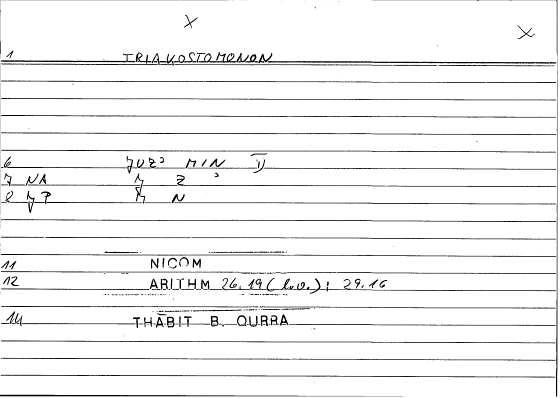 X X
1 TRIAKOSTOMONON
6 ǦUZʾ MIN
7 NA ǧ z ʾ
8
11 NICOM
12 ARITHM 26.19 (l.v.); 29.16
14 THĀBIT B. QURRA